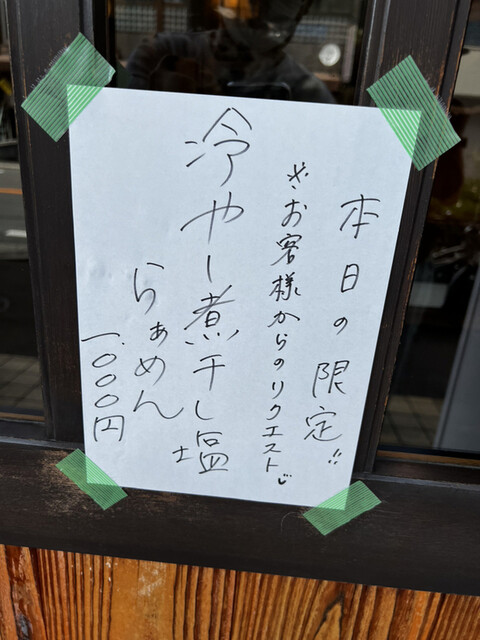 本日の限定!!
※お客様からのリクエスト
冷やし煮干し塩
らぁめん
一.000円